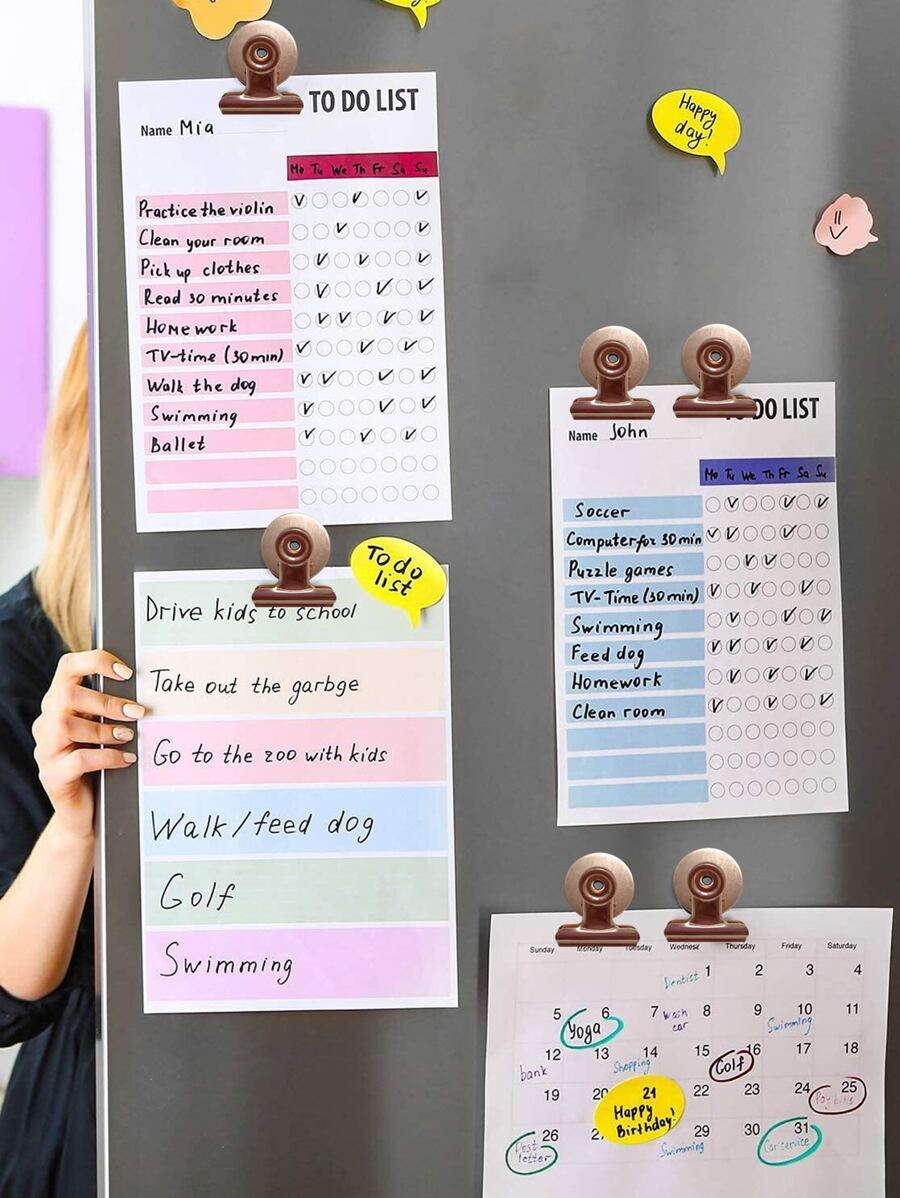 TO DO LIST
Name Mia
Mo Tu We Th Fr Sa Su
Practice the violin
Clean your room
Pick up clothes
Read 30 minutes
Homework
TV-time (30min)
Walk the dog
Swimming
Ballet
Happy
day!
To do
list
Drive kids to school
Take out the garbge
Go to the zoo with kids
Walk/feed dog
Golf
Swimming
TO DO LIST
Name John
Mo Tu We Th Fr Sa Su
Soccer
Computer for 30 min
Puzzle games
TV-Time (30min)
Swimming
Feed dog
Homework
Clean room
Sunday Monday Tuesday Wednesday Thursday Friday Saturday
Dentist 1 2 3 4
5 6 7 8 9 10 11
Yoga
Wash
car
Swimming
12 13 14 15 16 17 18
bank
Shopping
Golf
19 20 21 22 23 24 25
Happy
Birthday!
Pay bills
26 29 30 31
Post
letter
Swimming
Car service